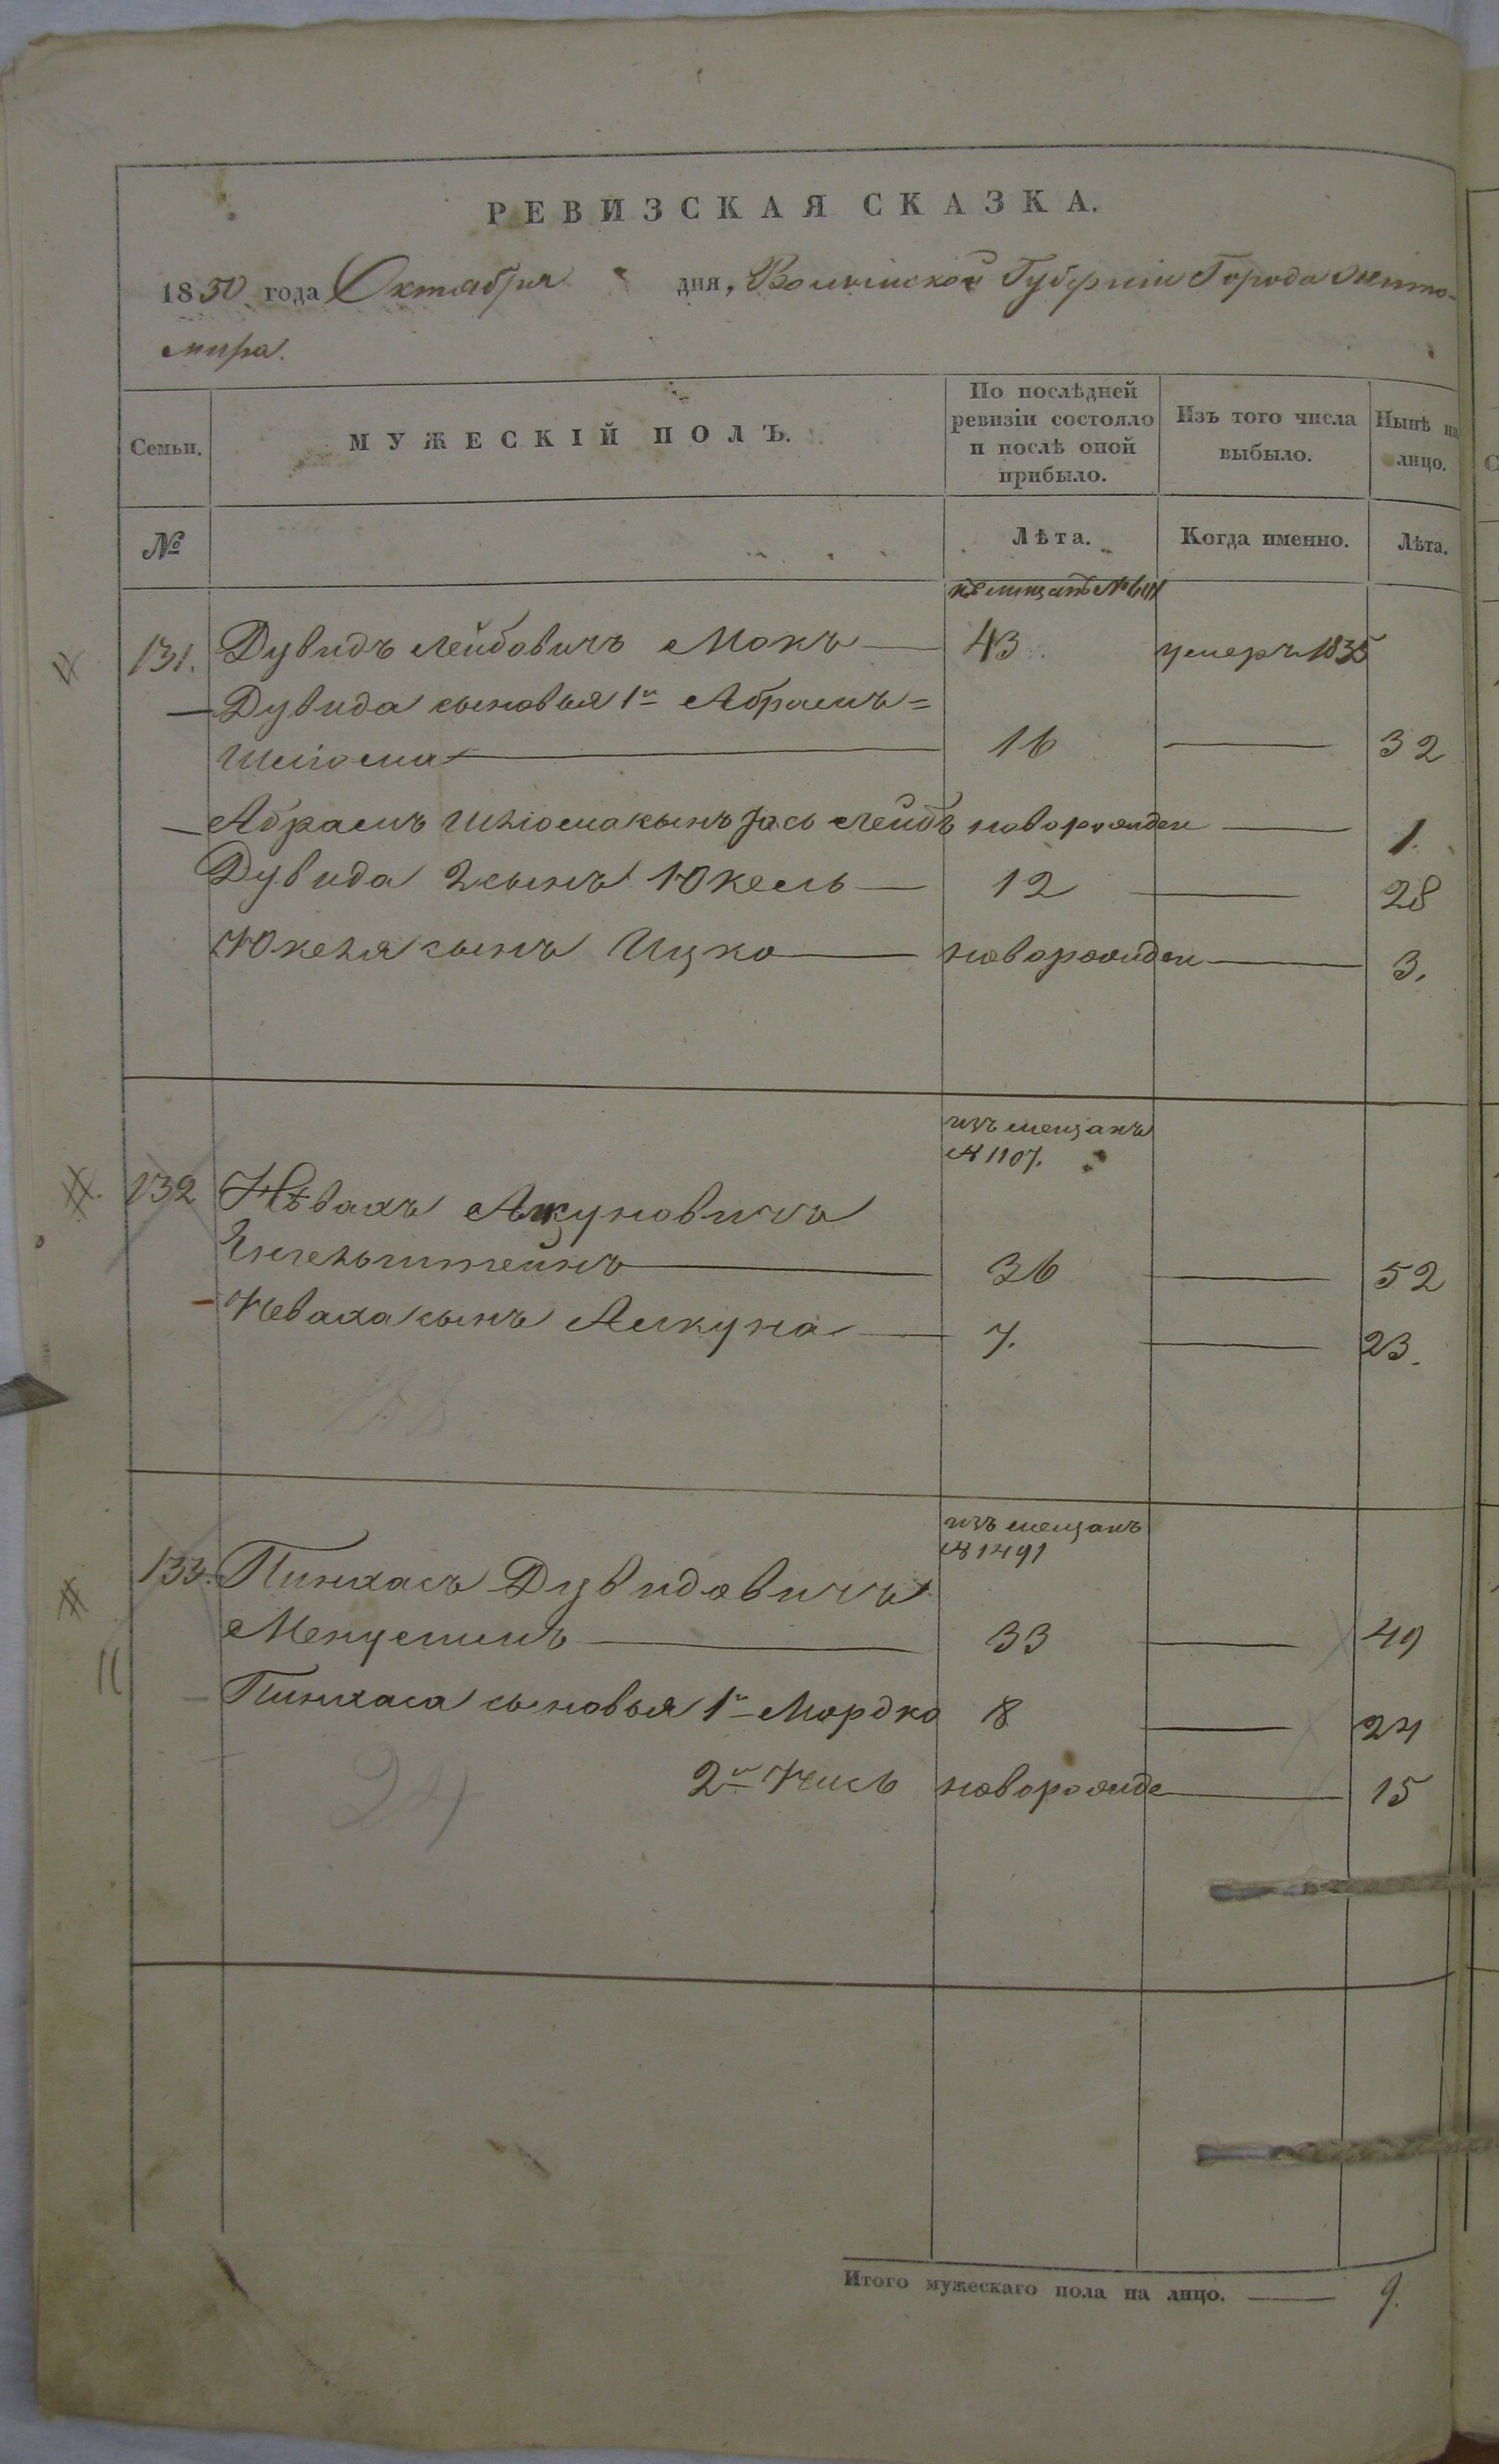 РЕВИЗСКАЯ СКАЗКА.
1850 года Октября дня, Волынской Губерніи Города Жито-
мира.
Семьи. МУЖЕСКІЙ ПОЛЪ. По послѣдней ревизіи состояло и послѣ оной прибыло. Изъ того числа выбыло. Нынѣ на лицо.
№ Лѣта. Когда именно. Лѣта.
131. Дувидъ Лейбовичъ Мокъ — 43 умеръ 1835
Дувида сыновья 1й Абрамъ=
Шліома — 16 — 32
Абрамъ Шліома сынъ Лейбъ новорожден — 1.
Дувида 2 сынъ Юкель — 12 — 28
Юкеля сынъ Ицко — новорожден — 3.
изъ мещанъ
№ 1107.
132
36 — 52
сынъ — 7. — 23.
изъ мещанъ
№ 1491
133. Пинхасъ Дувидовичъ
33 — 49
Пинхаса сыновья 1й Мордко 8 — 24
2й новорожде — 15
24
Итого мужескаго пола на лицо. — 9.